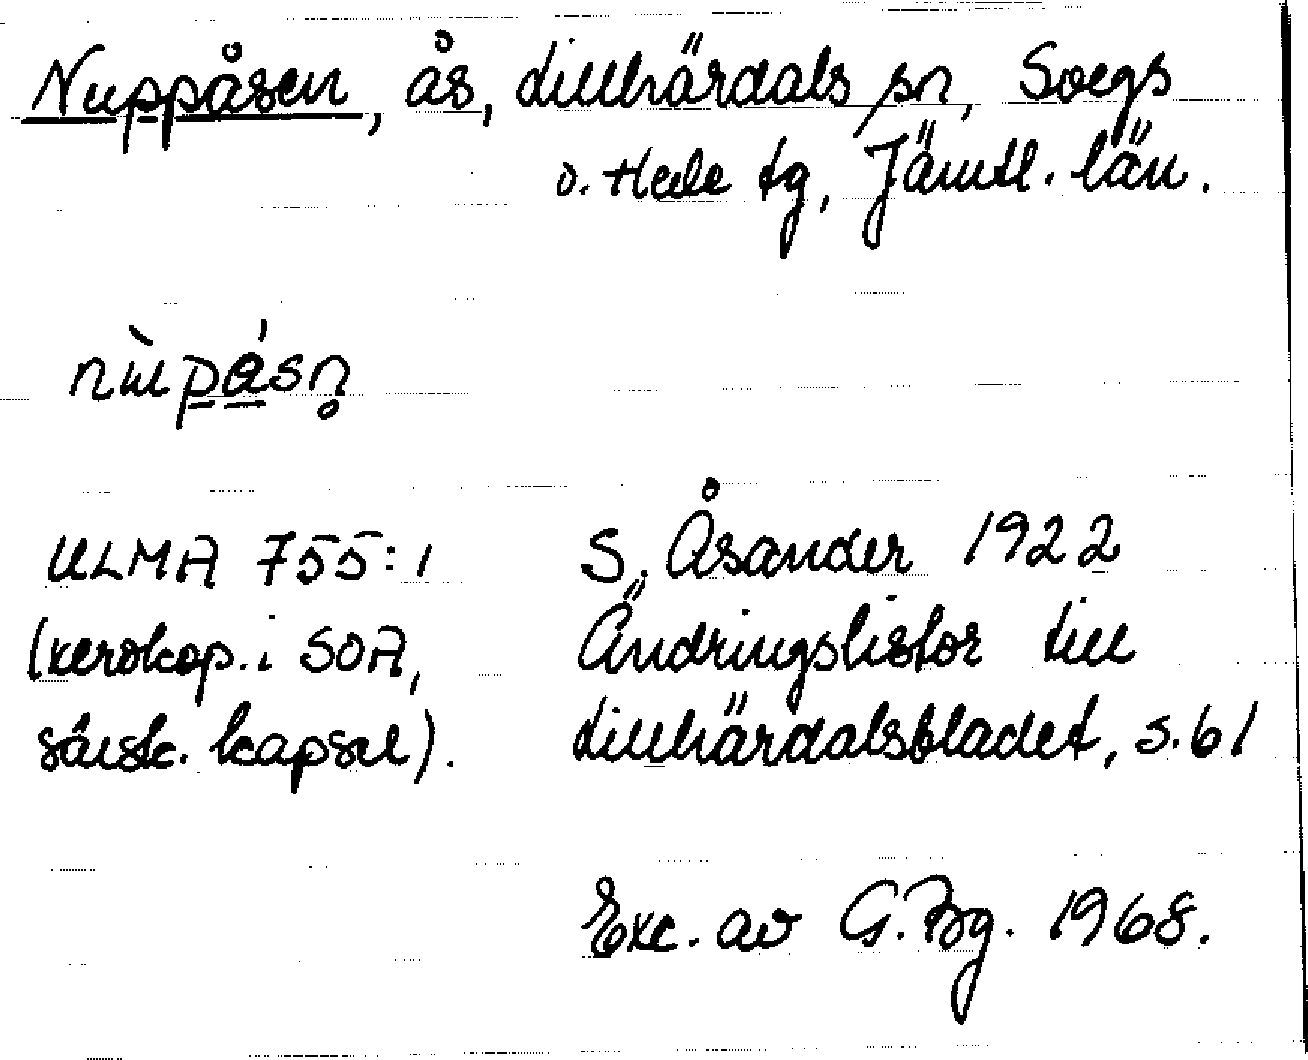 Nuppåsen, ås, Lillhärdals sn, Svegs
o. Hede tg, Jämtl. län.
ULMA 755:1
(xerokop. i SOA,
särsk. kapsel).
S. Åsander 1922
Ändringslistor till
Lillhärdalsbladet, s. 61
Exc. av G. Bg. 1968.